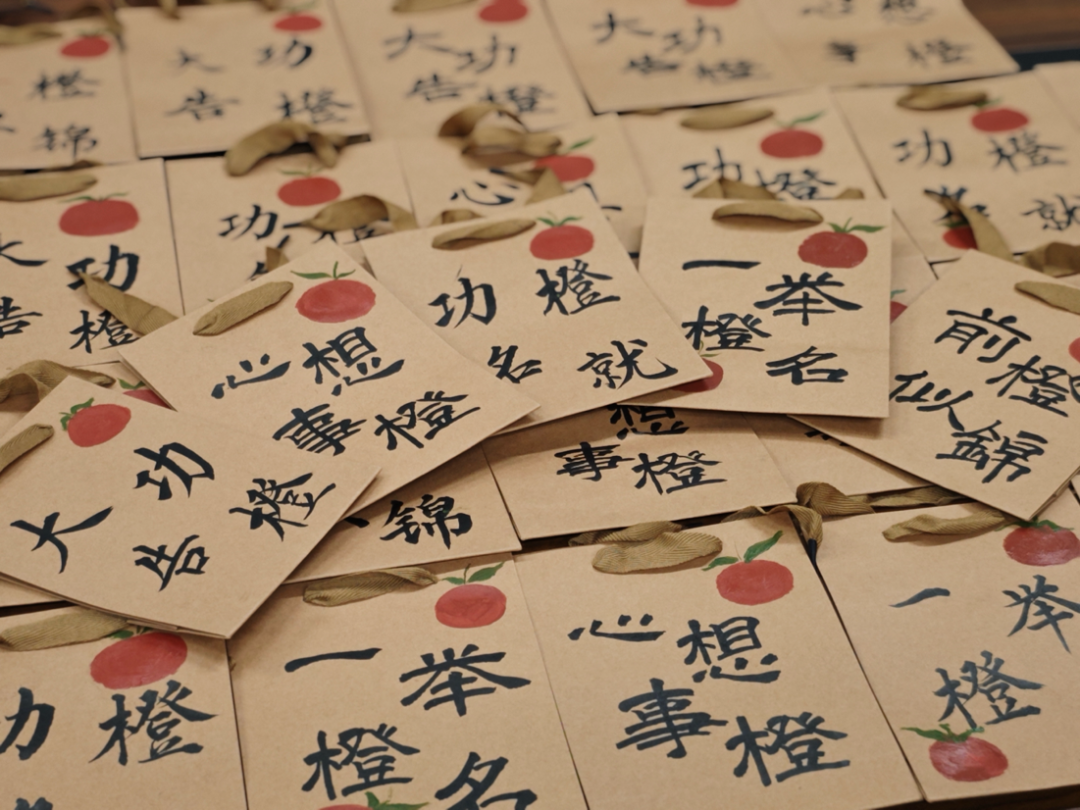 橙
锦
大功
告橙
大功
告橙
大功
告橙
心想
事橙
功橙
就
大功
告橙
功
心
功橙
心想
事橙
功橙
名就
一举
橙名
前橙
似錦
大功
告橙
想
事橙
锦
功橙
一举
橙名
心想
事橙
一举
橙